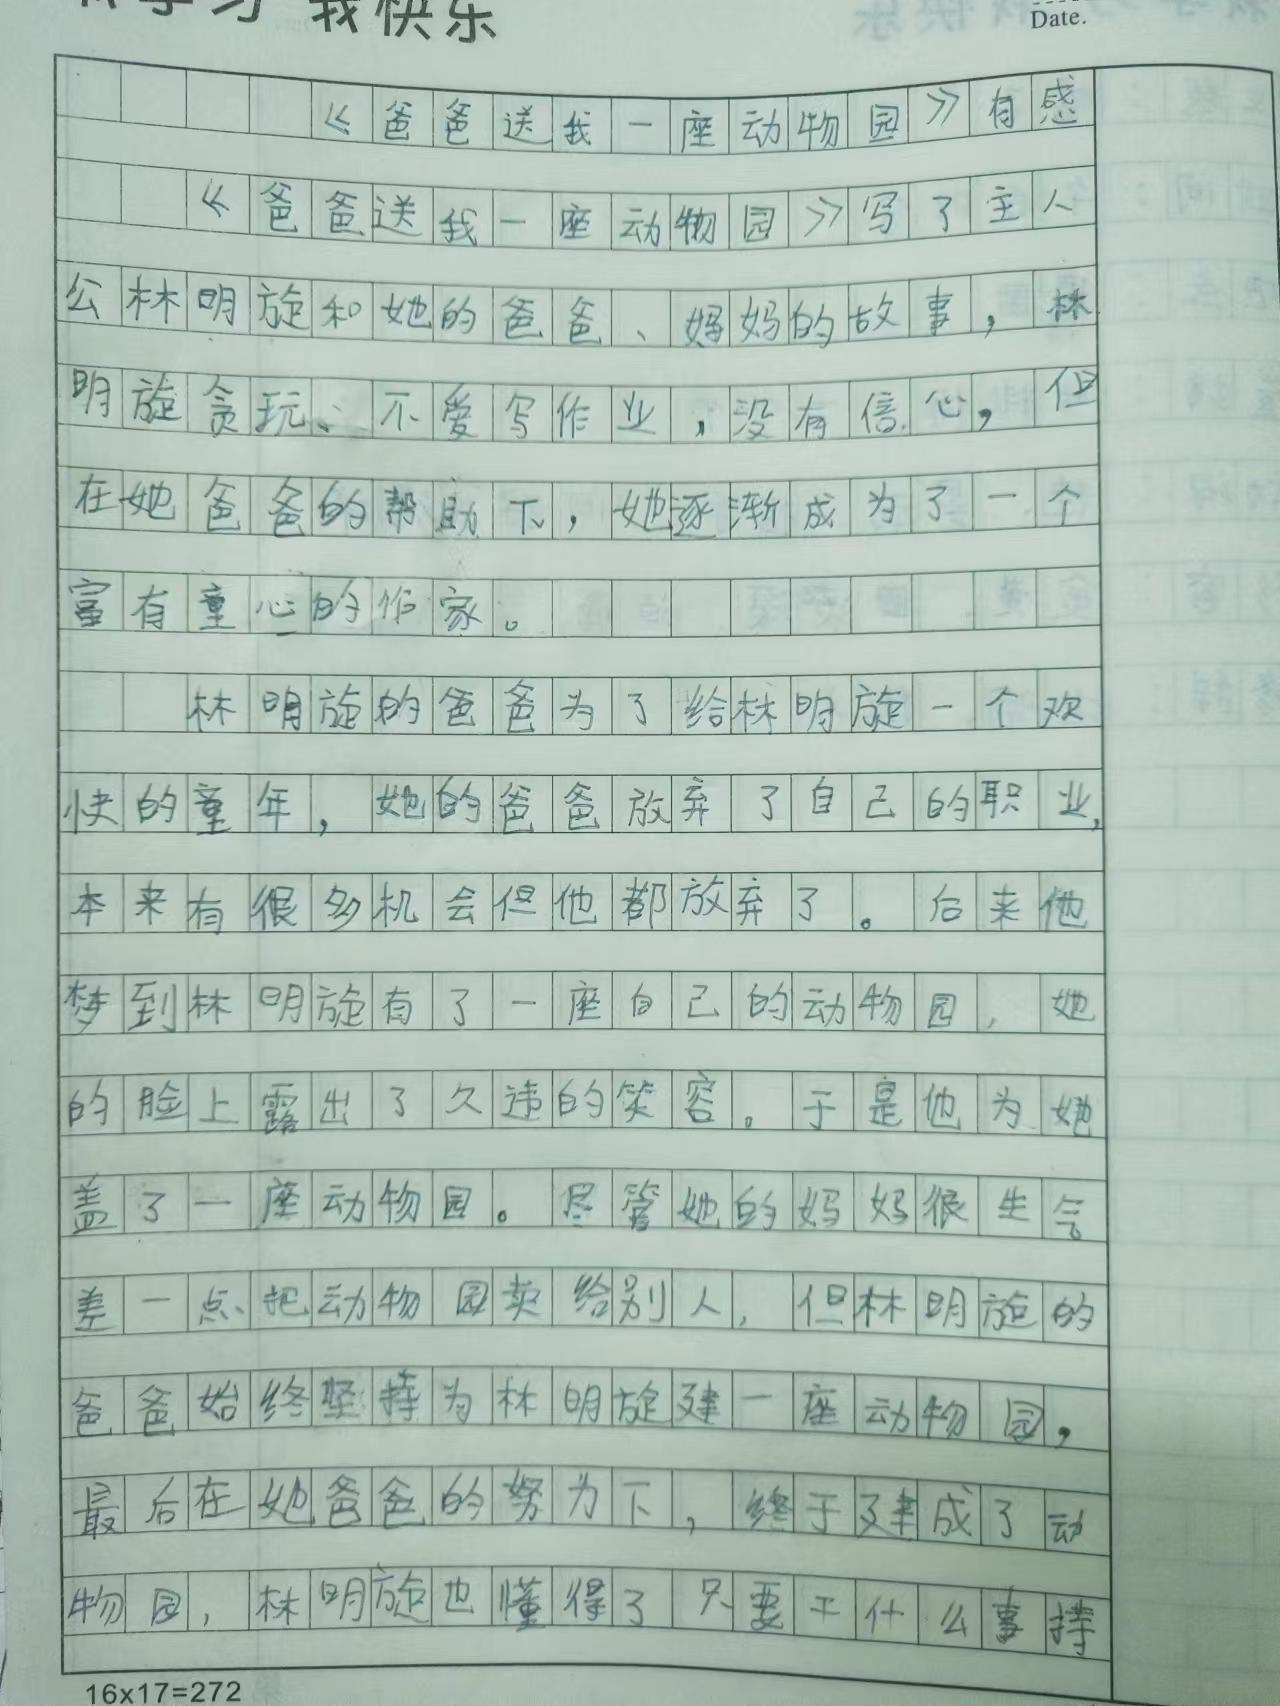 学习 我快乐
Date.
《爸爸送我一座动物园》有感
《爸爸送我一座动物园》写了主人
公林明旋和她的爸爸、妈妈的故事，林
明旋贪玩、不爱写作业，没有信心，但
在她爸爸的帮助下，她逐渐成为了一个
富有童心的作家。
林明旋的爸爸为了给林明旋一个欢
快的童年，她的爸爸放弃了自己的职业，
本来有很多机会但他都放弃了。后来他
梦到林明旋有了一座自己的动物园，她
的脸上露出了久违的笑容。于是他为她
盖了一座动物园。尽管她的妈妈很生气
差一点把动物园卖给别人，但林明旋的
爸爸始终坚持为林明旋建一座动物园，
最后在她爸爸的努为下，终于建成了动
物园，林明旋也懂得了只要干什么事持
16x17=272